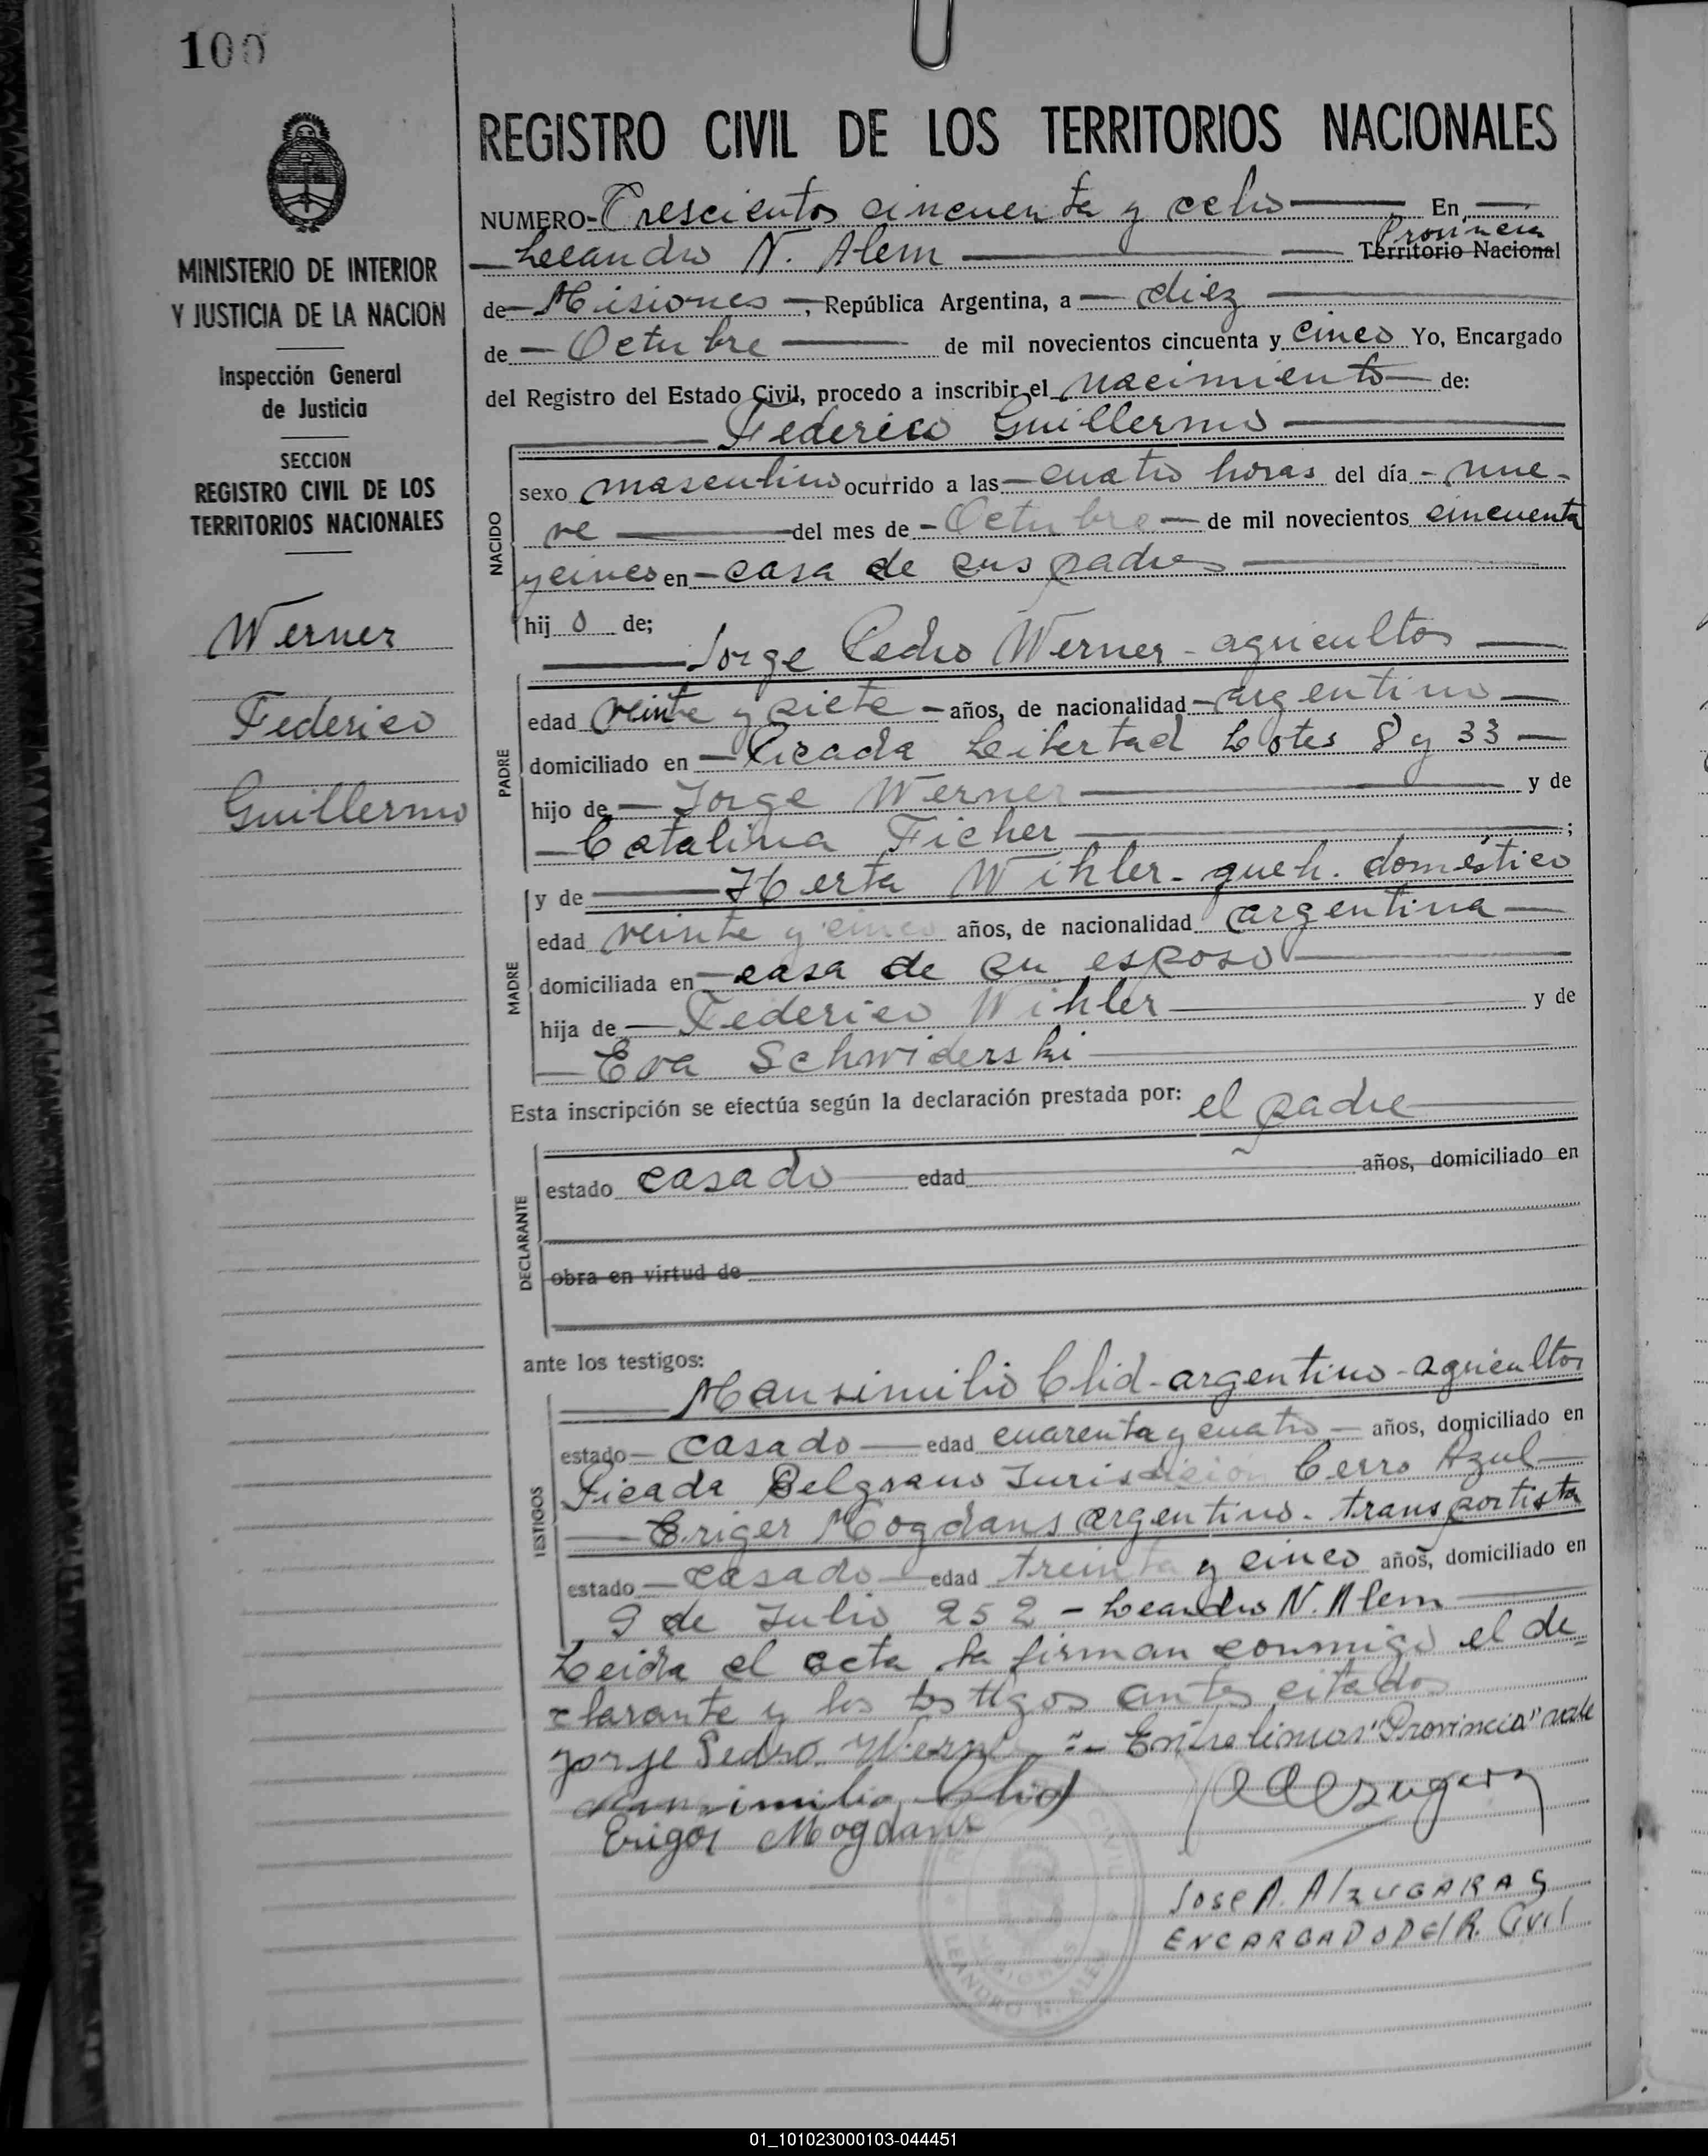 100
MINISTERIO DE INTERIOR
Y JUSTICIA DE LA NACION
Inspección General
de Justicia
SECCION
REGISTRO CIVIL DE LOS
TERRITORIOS NACIONALES
Werner
Federico
Guillermo
REGISTRO CIVIL DE LOS TERRITORIOS NACIONALES
NUMERO- Trescientos cincuenta y ocho En
Provincia
Leeandro N. Alem Territorio Nacional
de Misiones, República Argentina, a diez
de Octubre de mil novecientos cincuenta y cinco Yo, Encargado
del Registro del Estado Civil, procedo a inscribir el nacimiento de:
Federico Guillermo
NACIDO
sexo masculino ocurrido a las cuatro horas del día nue-
ve del mes de Octubre de mil novecientos cincuenta
y cinco en casa de sus padres
hij o de;
Jorge Pedro Werner - agricultor
PADRE
edad veinte y siete años, de nacionalidad argentino
domiciliado en Picada Leibertad Lotes 8 y 33
hijo de Jorge Werner y de
Catalina Ficher ;
MADRE
y de Herta Wihler - queh. doméstico
edad veinte y cinco años, de nacionalidad argentina
domiciliada en casa de su esposo
hija de Federico Wihler y de
Eva Schwiderski
Esta inscripción se efectúa según la declaración prestada por: el padre
DECLARANTE
estado casado edad años, domiciliado en
obra en virtud de
ante los testigos:
TESTIGOS
Mansimilio Clid - argentino - agricultor
estado casado edad cuarenta y cuatro años, domiciliado en
Picada Belgrano Jurisdicion Cerro Azul
Eriger Mogdans argentino - transportista
estado casado edad treinta y cinco años, domiciliado en
9 de Julio 252 - Leandro N. Alem
Leida el acta la firman conmigo el de-
clarante y los testigos antes citados
Jorge Pedro Werner :- Entre lineas "Provincia" vale
Mansimilio Clid
Eriger Mogdans
JOSE A. AlzUGARAS
ENCARGADO DEl R. Civil
CIVIL
MISIONES
LEANDRO N. ALEM
01_101023000103-044451